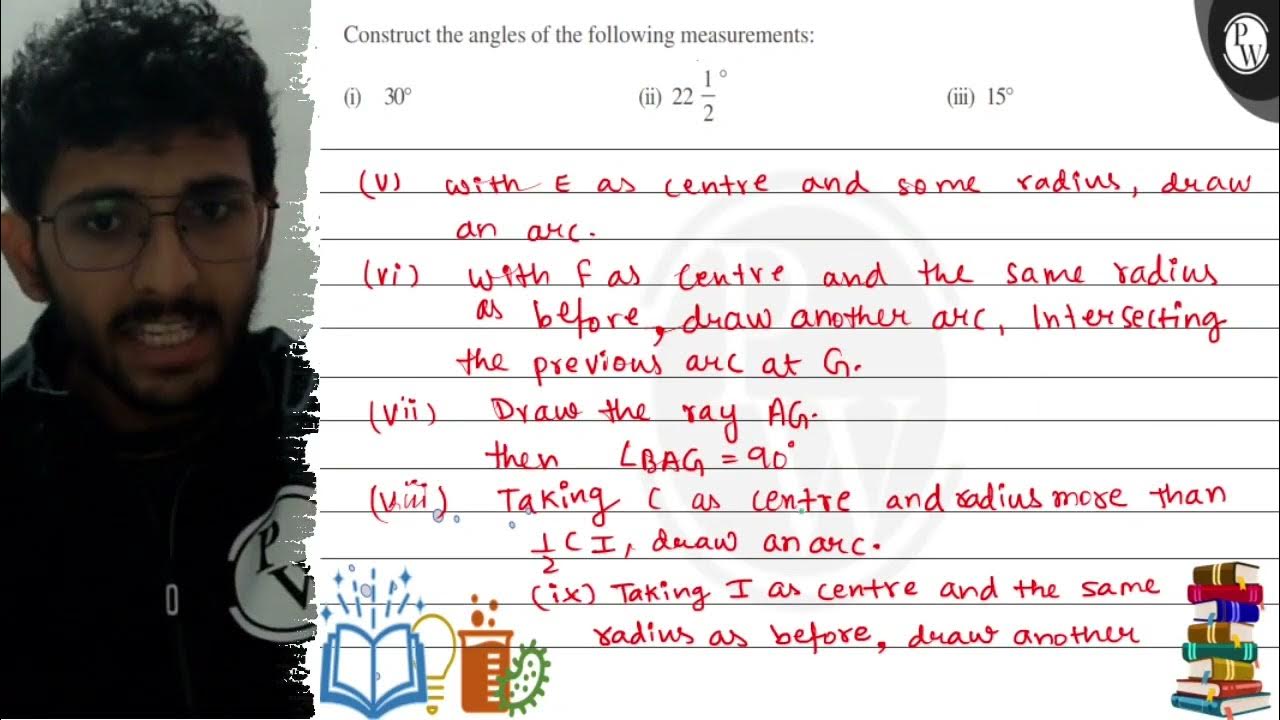 Construct the angles of the following measurements:
(i) 30° (ii) 22 1/2° (iii) 15°
(v) with E as centre and some radius, draw
an arc.
(vi) with F as centre and the same radius
as before, draw another arc, Intersecting
the previous arc at G.
(vii) Draw the ray AG.
then ∠BAG = 90°
(viii) Taking C as centre and radius more than
1/2 C I, draw an arc.
(ix) Taking I as centre and the same
radius as before, draw another
PW
PW
PW